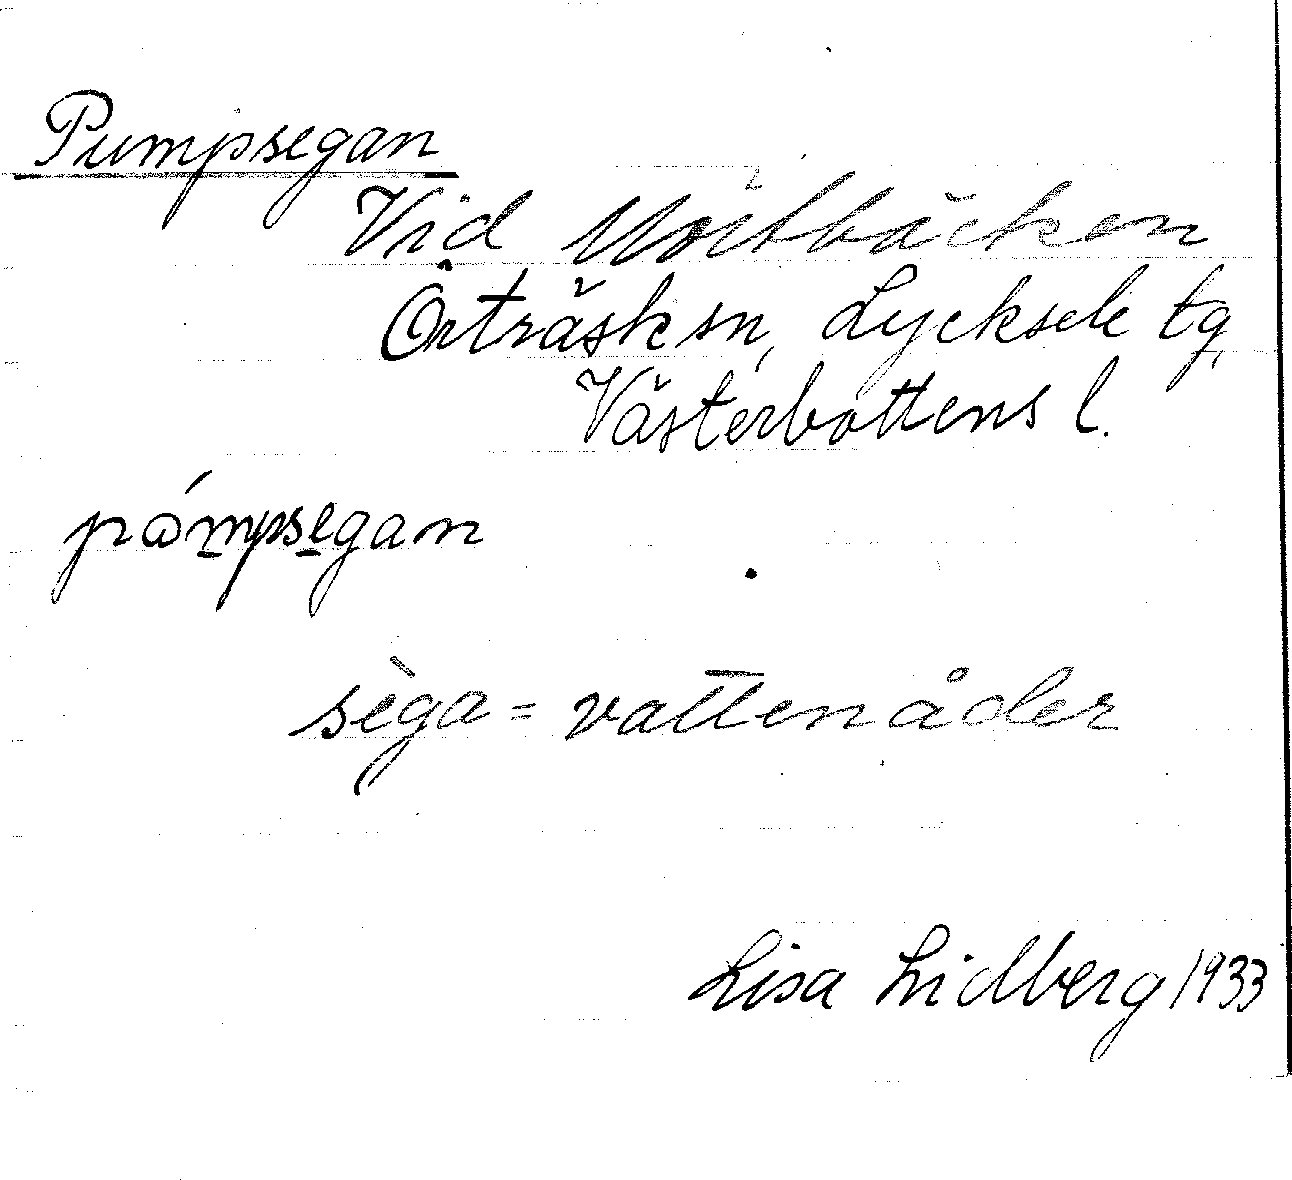 Pumpsegan
Vid
Örträsk sn, Lycksele tg,
Västerbottens l.
pómpsegan
sèga = vattenåder
Lisa Lidberg 1933